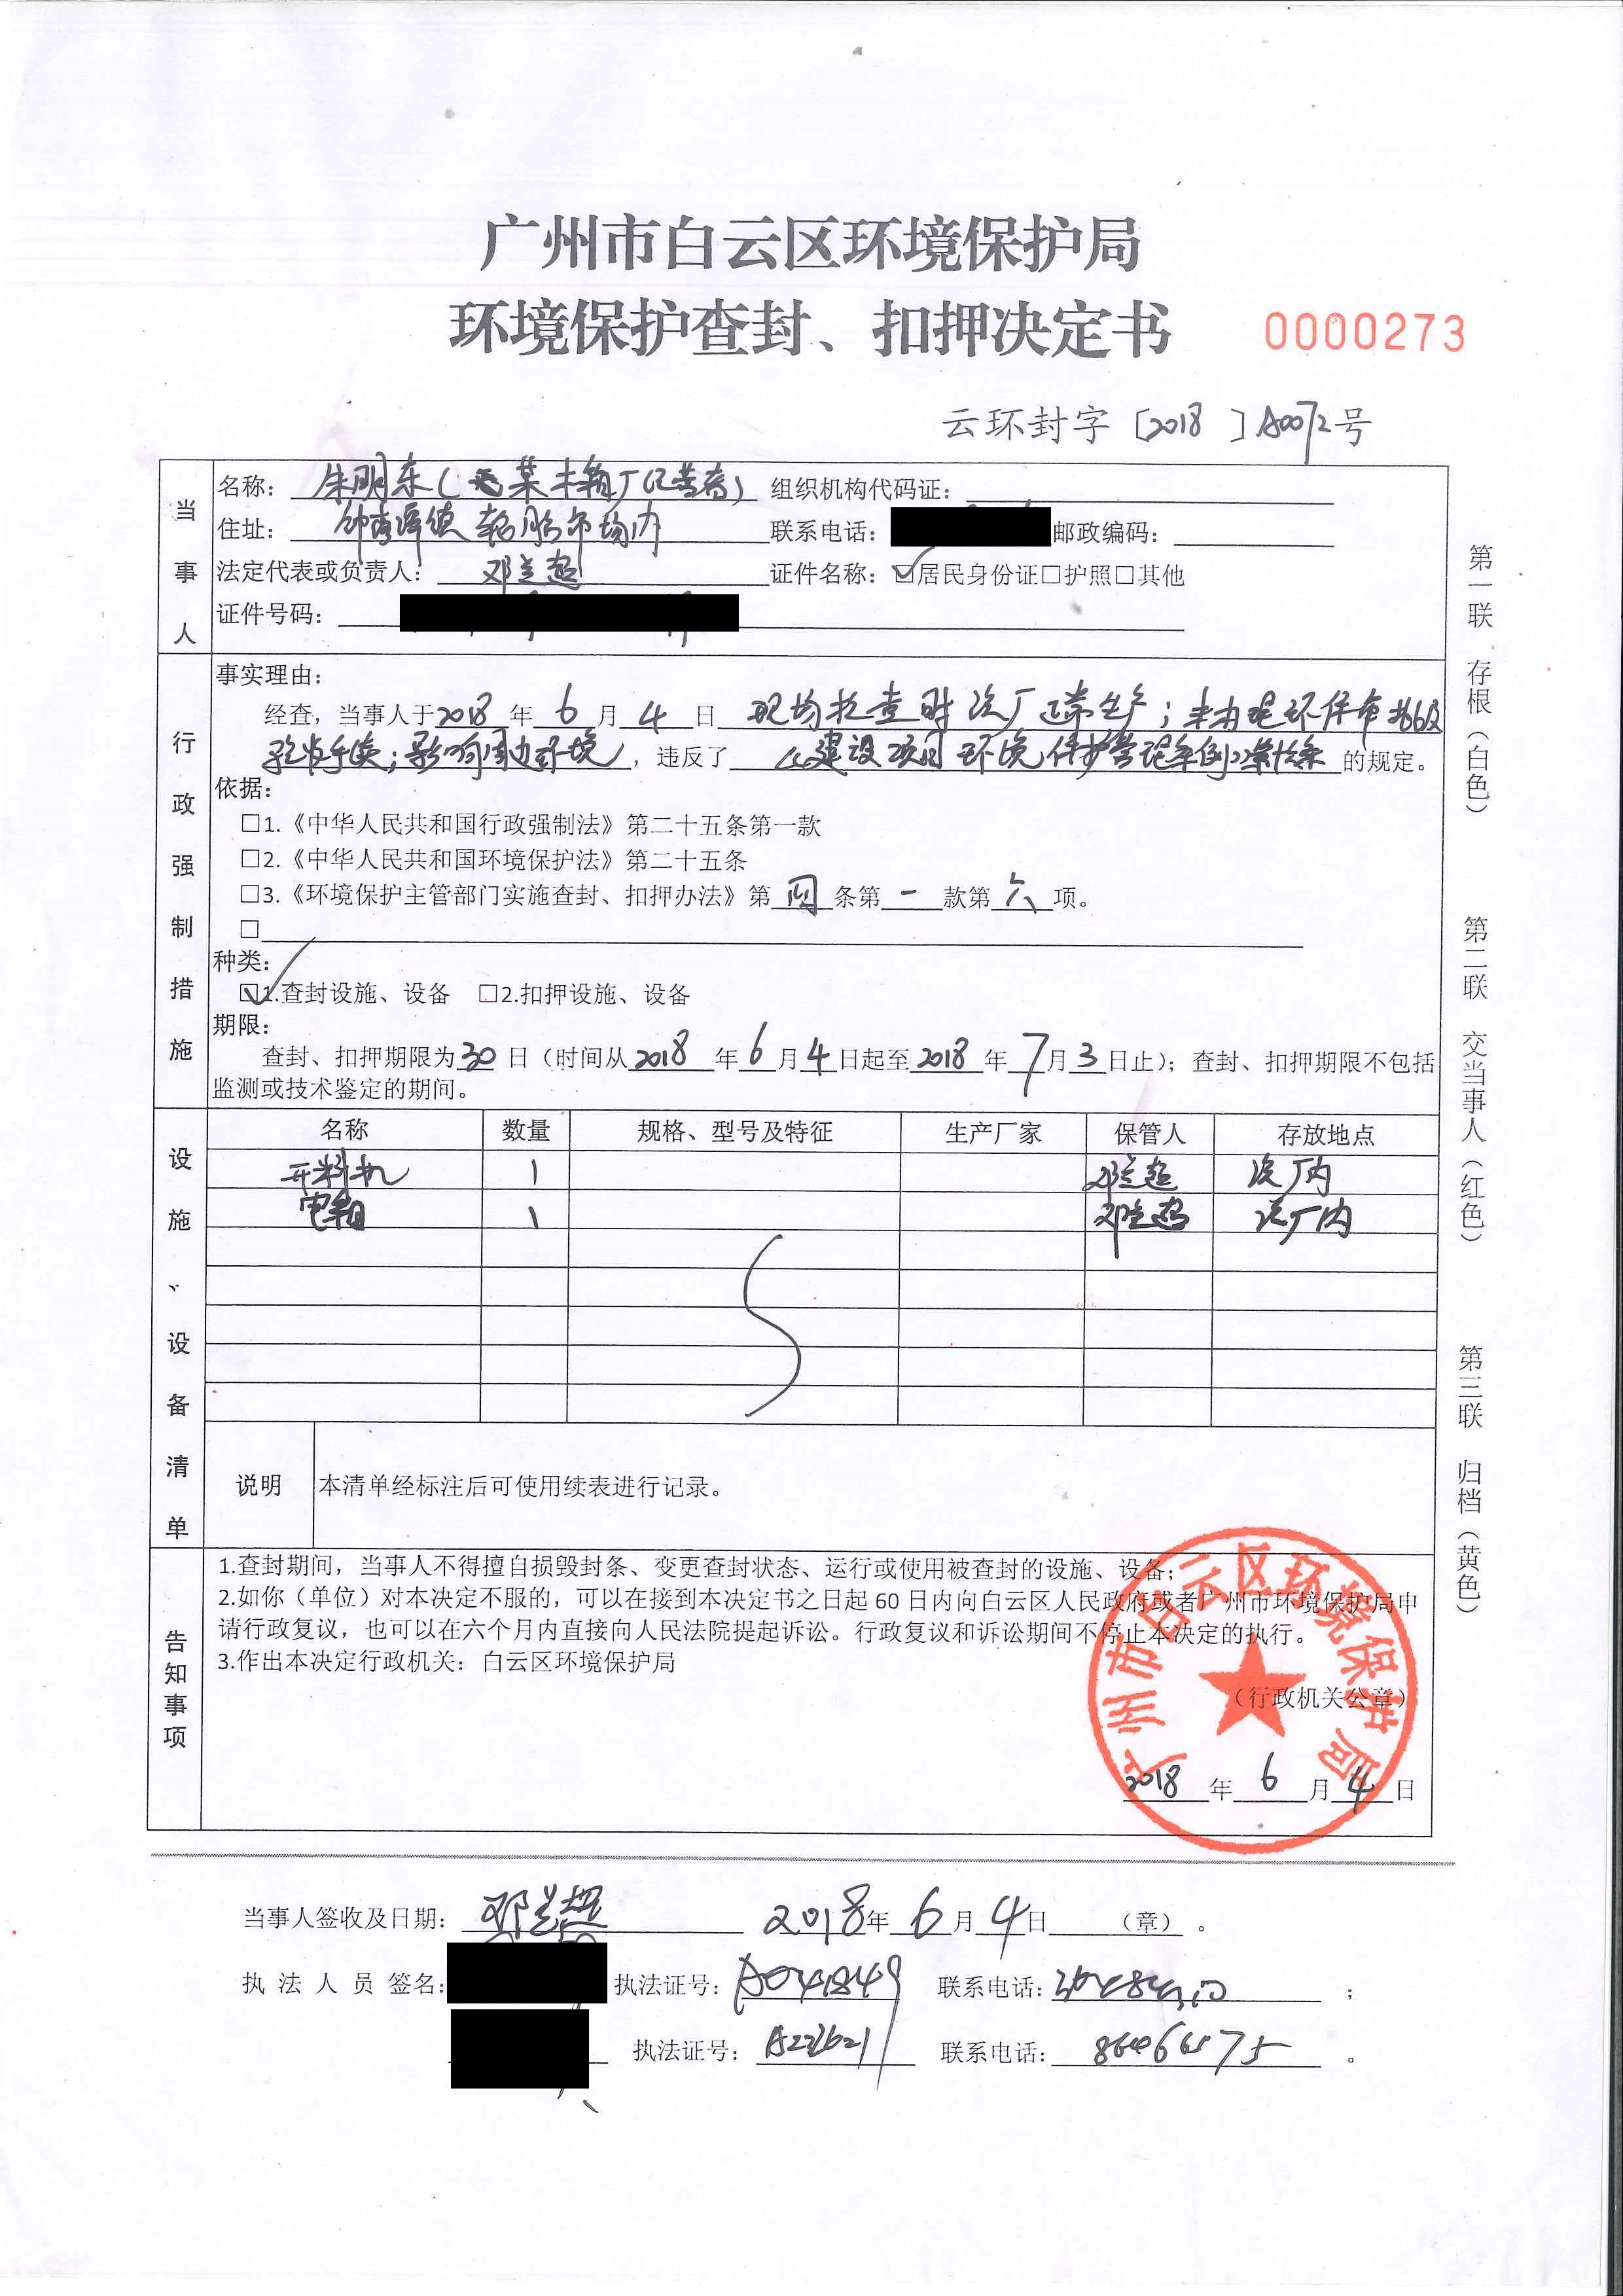 广州市白云区环境保护局
环境保护查封、扣押决定书 0000273
云环封字〔2018〕A0072号
当事人
名称：朱明东（ 某木箱厂经营者） 组织机构代码证：
住址：钟落潭镇 轮胎市场内 联系电话： 邮政编码：
法定代表或负责人：邓兰超 证件名称：☑居民身份证□护照□其他
证件号码：
行政强制措施
事实理由：
经查，当事人于2018年6月4日 现场检查时该厂正常生产；未办理环保审批及
验收手续；影响周边环境，违反了《建设项目环境保护管理条例》 的规定。
依据：
□1.《中华人民共和国行政强制法》第二十五条第一款
□2.《中华人民共和国环境保护法》第二十五条
□3.《环境保护主管部门实施查封、扣押办法》第四条第一款第六项。
□
种类：
☑1.查封设施、设备 □2.扣押设施、设备
期限：
查封、扣押期限为30日（时间从2018年6月4日起至2018年7月3日止）；查封、扣押期限不包括
监测或技术鉴定的期间。
设施、设备清单
名称 数量 规格、型号及特征 生产厂家 保管人 存放地点
开料机 1 邓兰超 该厂内
电箱 1 邓兰超 该厂内
说明 本清单经标注后可使用续表进行记录。
告知事项
1.查封期间，当事人不得擅自损毁封条、变更查封状态、运行或使用被查封的设施、设备；
2.如你（单位）对本决定不服的，可以在接到本决定书之日起 60 日内向白云区人民政府或者广州市环境保护局申
请行政复议，也可以在六个月内直接向人民法院提起诉讼。行政复议和诉讼期间不停止本决定的执行。
3.作出本决定行政机关：白云区环境保护局
（行政机关公章）
广州市白云区环境保护局
2018年6月4日
当事人签收及日期：邓兰超 2018年6月4日 （章）。
执法人员签名： 执法证号：A041849 联系电话： ；
执法证号： 联系电话： 。
第一联 存根（白色）
第二联 交当事人（红色）
第三联 归档（黄色）